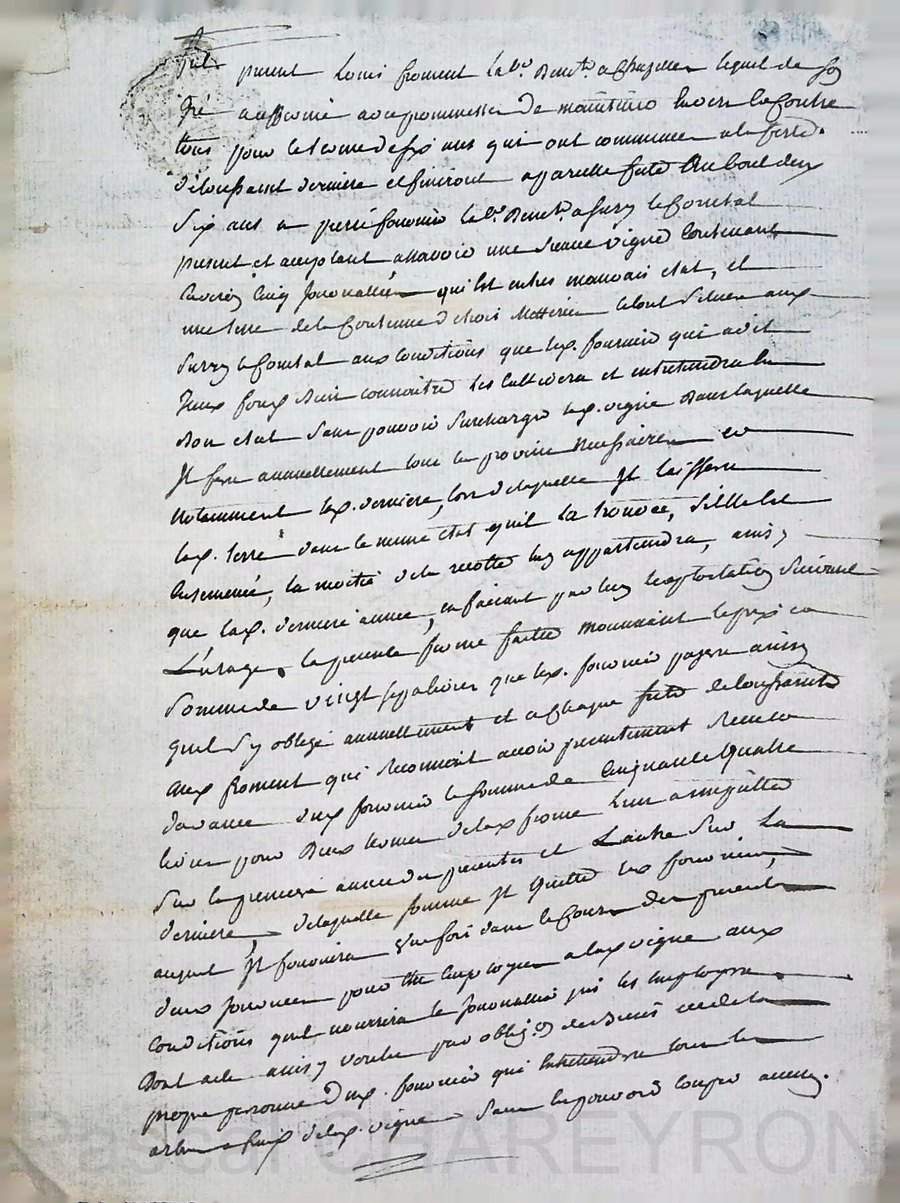 fut present Louis froment lab.r demt. a Chazelles lequel de son
gré a affermé avec promesse de maintenir envers et contre
tous pour le terme de six ans qui ont commencé a la fete
de toussaint derniere et finiront a pareille fete au bout desd.
six ans a pierre fournier lab.r demt. a Sury le Comtal
present et acceptant assavoir une sienne vigne contenant
environ cinq journallées qui est en tres mauvais etat, et
une terre de la contenue d'trois metterées le tout situé aud.
Surry le Comtal aux conditions que led. fournier qui a dit
iceux fonds bien connoitre les cultivera et entretiendra en
bon etat sans pouvoir surcharger lad. vigne dans laquelle
il fera annuellement tous les provins necessaires et
notamment lad. derniere, lors de laquelle il laissera
lad. terre dans le meme etat qu'il la trouvée, si elle est
ensemencé, la moitié de la recolte luy appartiendra, ainsy
que lad. derniere année, en faisant par luy l'exploitation suivant
L'usage, la presente ferme faitte moyennant le prix et
somme de vingt sept livres que led. fournier payera ainsy
quil s'y oblige annuellement et a chaque fete de toussaint
aud. froment qui reconnoit avoir presentement receu
d'avance dud. fournier la somme de cinquante quatre
livres pour deux termes de lad. ferme l'un a imputter
sur la premiere année des presentes et L'autre sur La
derniere, de laquelle somme il quitte led. fournier,
auquel il fournira une fois dans le cours des presentes
deux journées pour etre employées a lad. vigne aux
conditions quil nourrira le journallier qui les employera
Dont acte ainsy voulu par oblig.on de biens et de la
propre personne dud. fournier qui entretiendra tous les
arbres a fruits de lad. vigne sans les pouvoir couper aucuns.
Pascal CHAREYRON